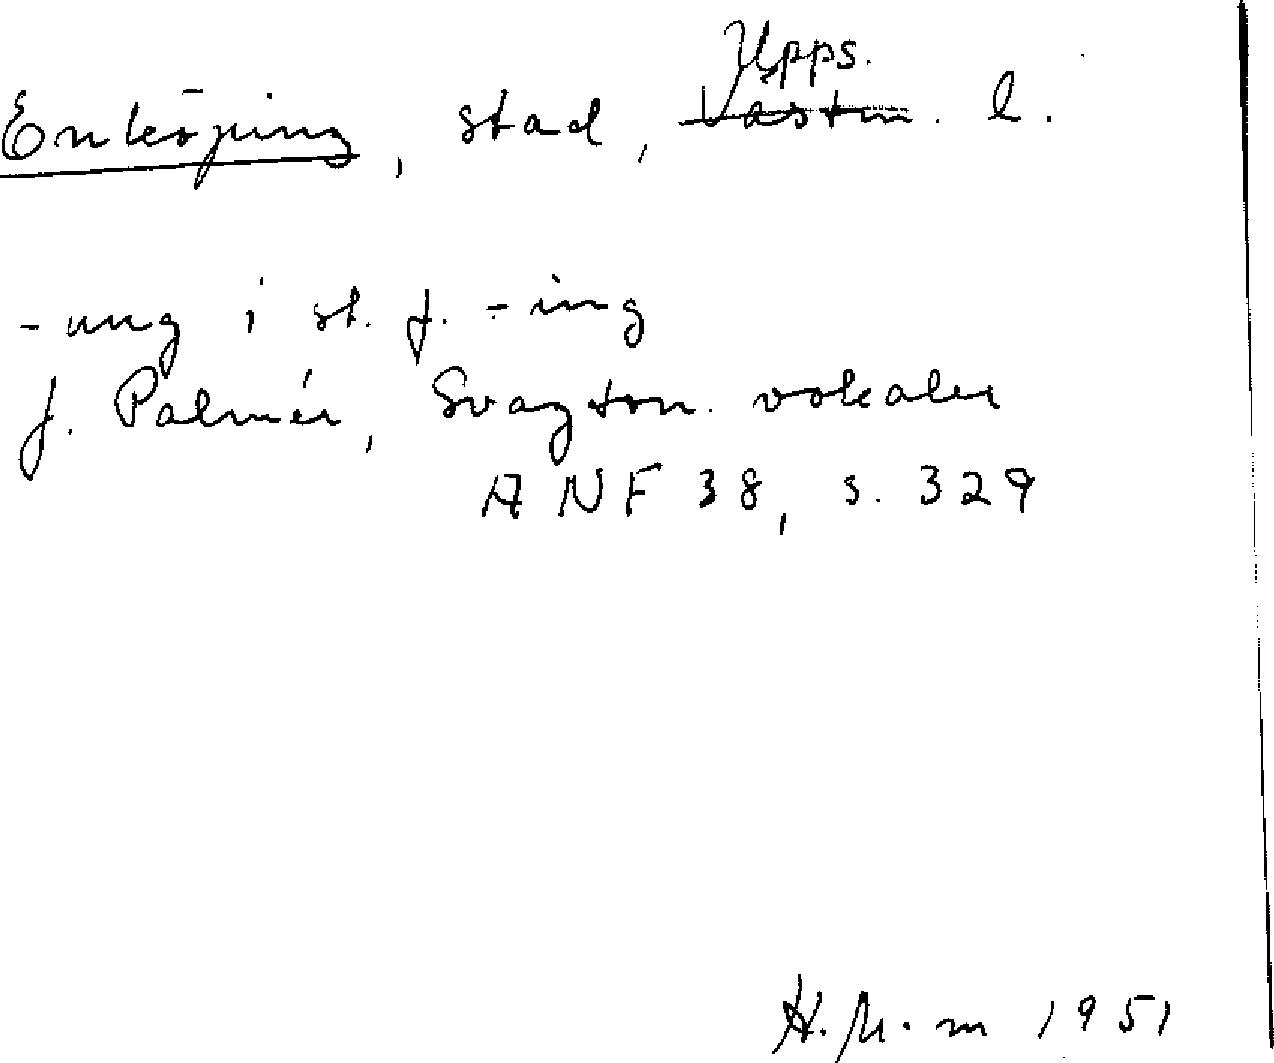 Upps.
Enköping, stad, Västm. l.
-ung i st. f. -ing
J. Palmér, Svagton. vokaler
ANF 38, s. 329
1951